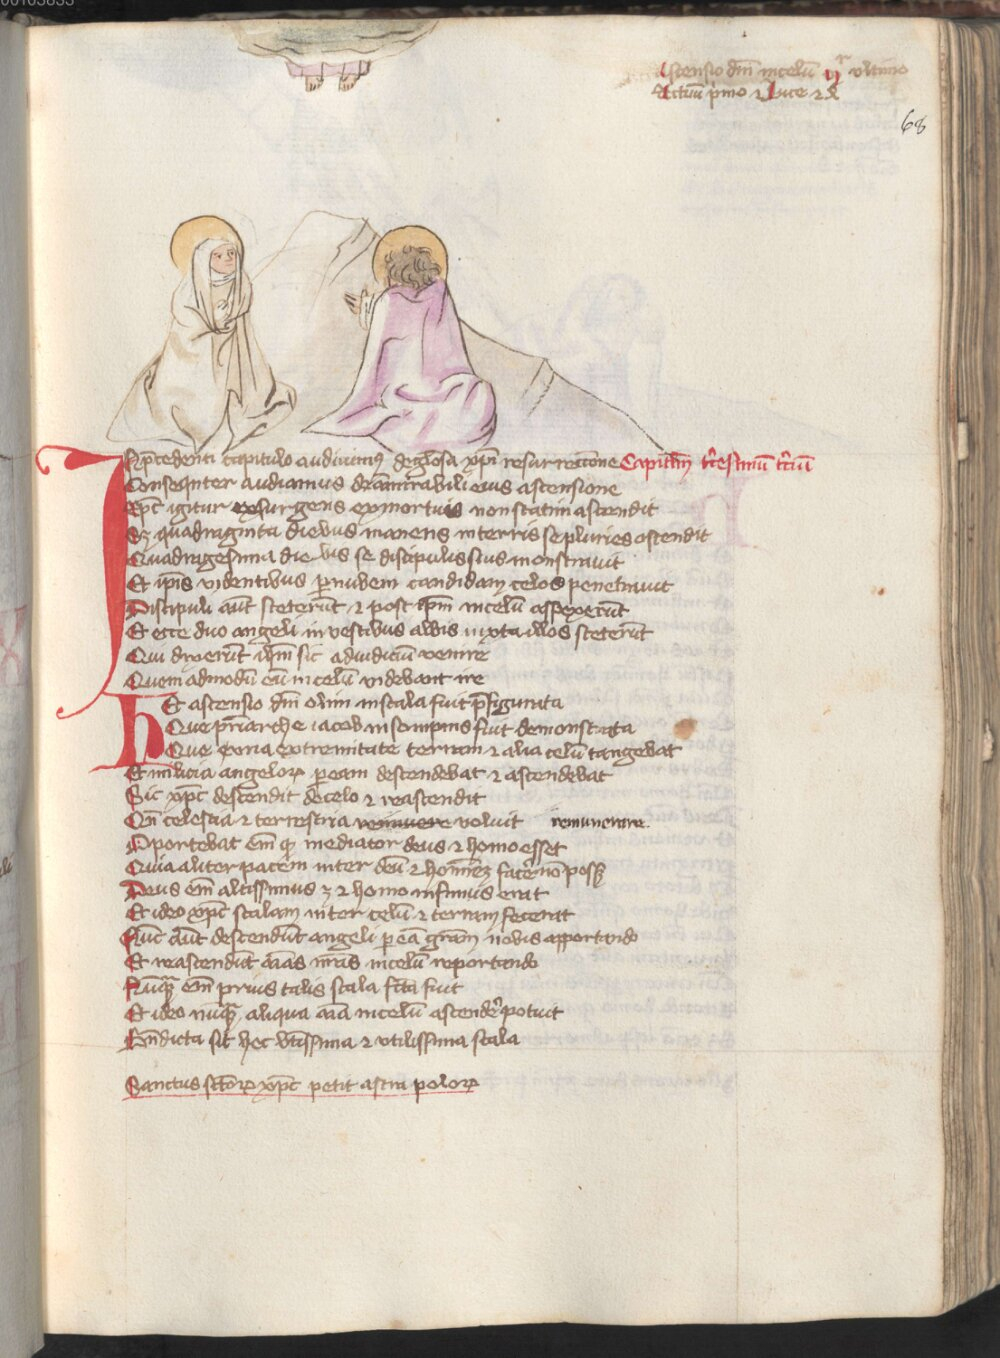 00103833
Ascensio dni in celu mr vltimo
Actuu primo & Luce & x
68
In pcedenti capitulo audiuimus de glosa xpi resurrectione Capitlm tricesimu terciu
Consequnter audiamus de admirabili eius ascensione
Xpc igitur exsurgens ex mortuis non statim ascendit
Sz quadraginta diebus manens in terris se pluries ostendit
Quadragesima die vis se discipulis suis monstrauit
Et ipis videntibus per nubem candidam celos penetrauit
Discipuli aut steterut & post ipm in celu aspexerut
Et ecce duo angeli in vestibus albis iuxta illos steterut
Qui dixerut ihm sic ad iudiciu venire
Quemadmodu eu in celu videbant ire
Hec ascensio dni olim in scala fuit pfigurata
Que priarche iacob in sompnis fuit demonstrata
Que ex vna extremitate terram & alia celu tangebat
Et milicia angelor per eam descendebat & ascendebat
Sic xpc descendit de celo & reascendit
Qn celestia & terrestria reunire voluit remunerare
Oportebat em q mediator deus & homo esset
Quia aliter pacem inter deu & hominez facere no posz
Deus em altissimus z & homo infimus erat
Et ideo xpc scalam inter celu & terram fecerat
Nuc aut descendut angeli per ea gram nobis apportando
Et reascendut aias nras in celu reportando
Nuqz em prius talis scala fcta fuit
Et ideo nuqz aliqua aia in celu ascendere potuit
Bndicta sit hec btissima & vtilissima scala
Sanctus sctor xpc petit astra polor